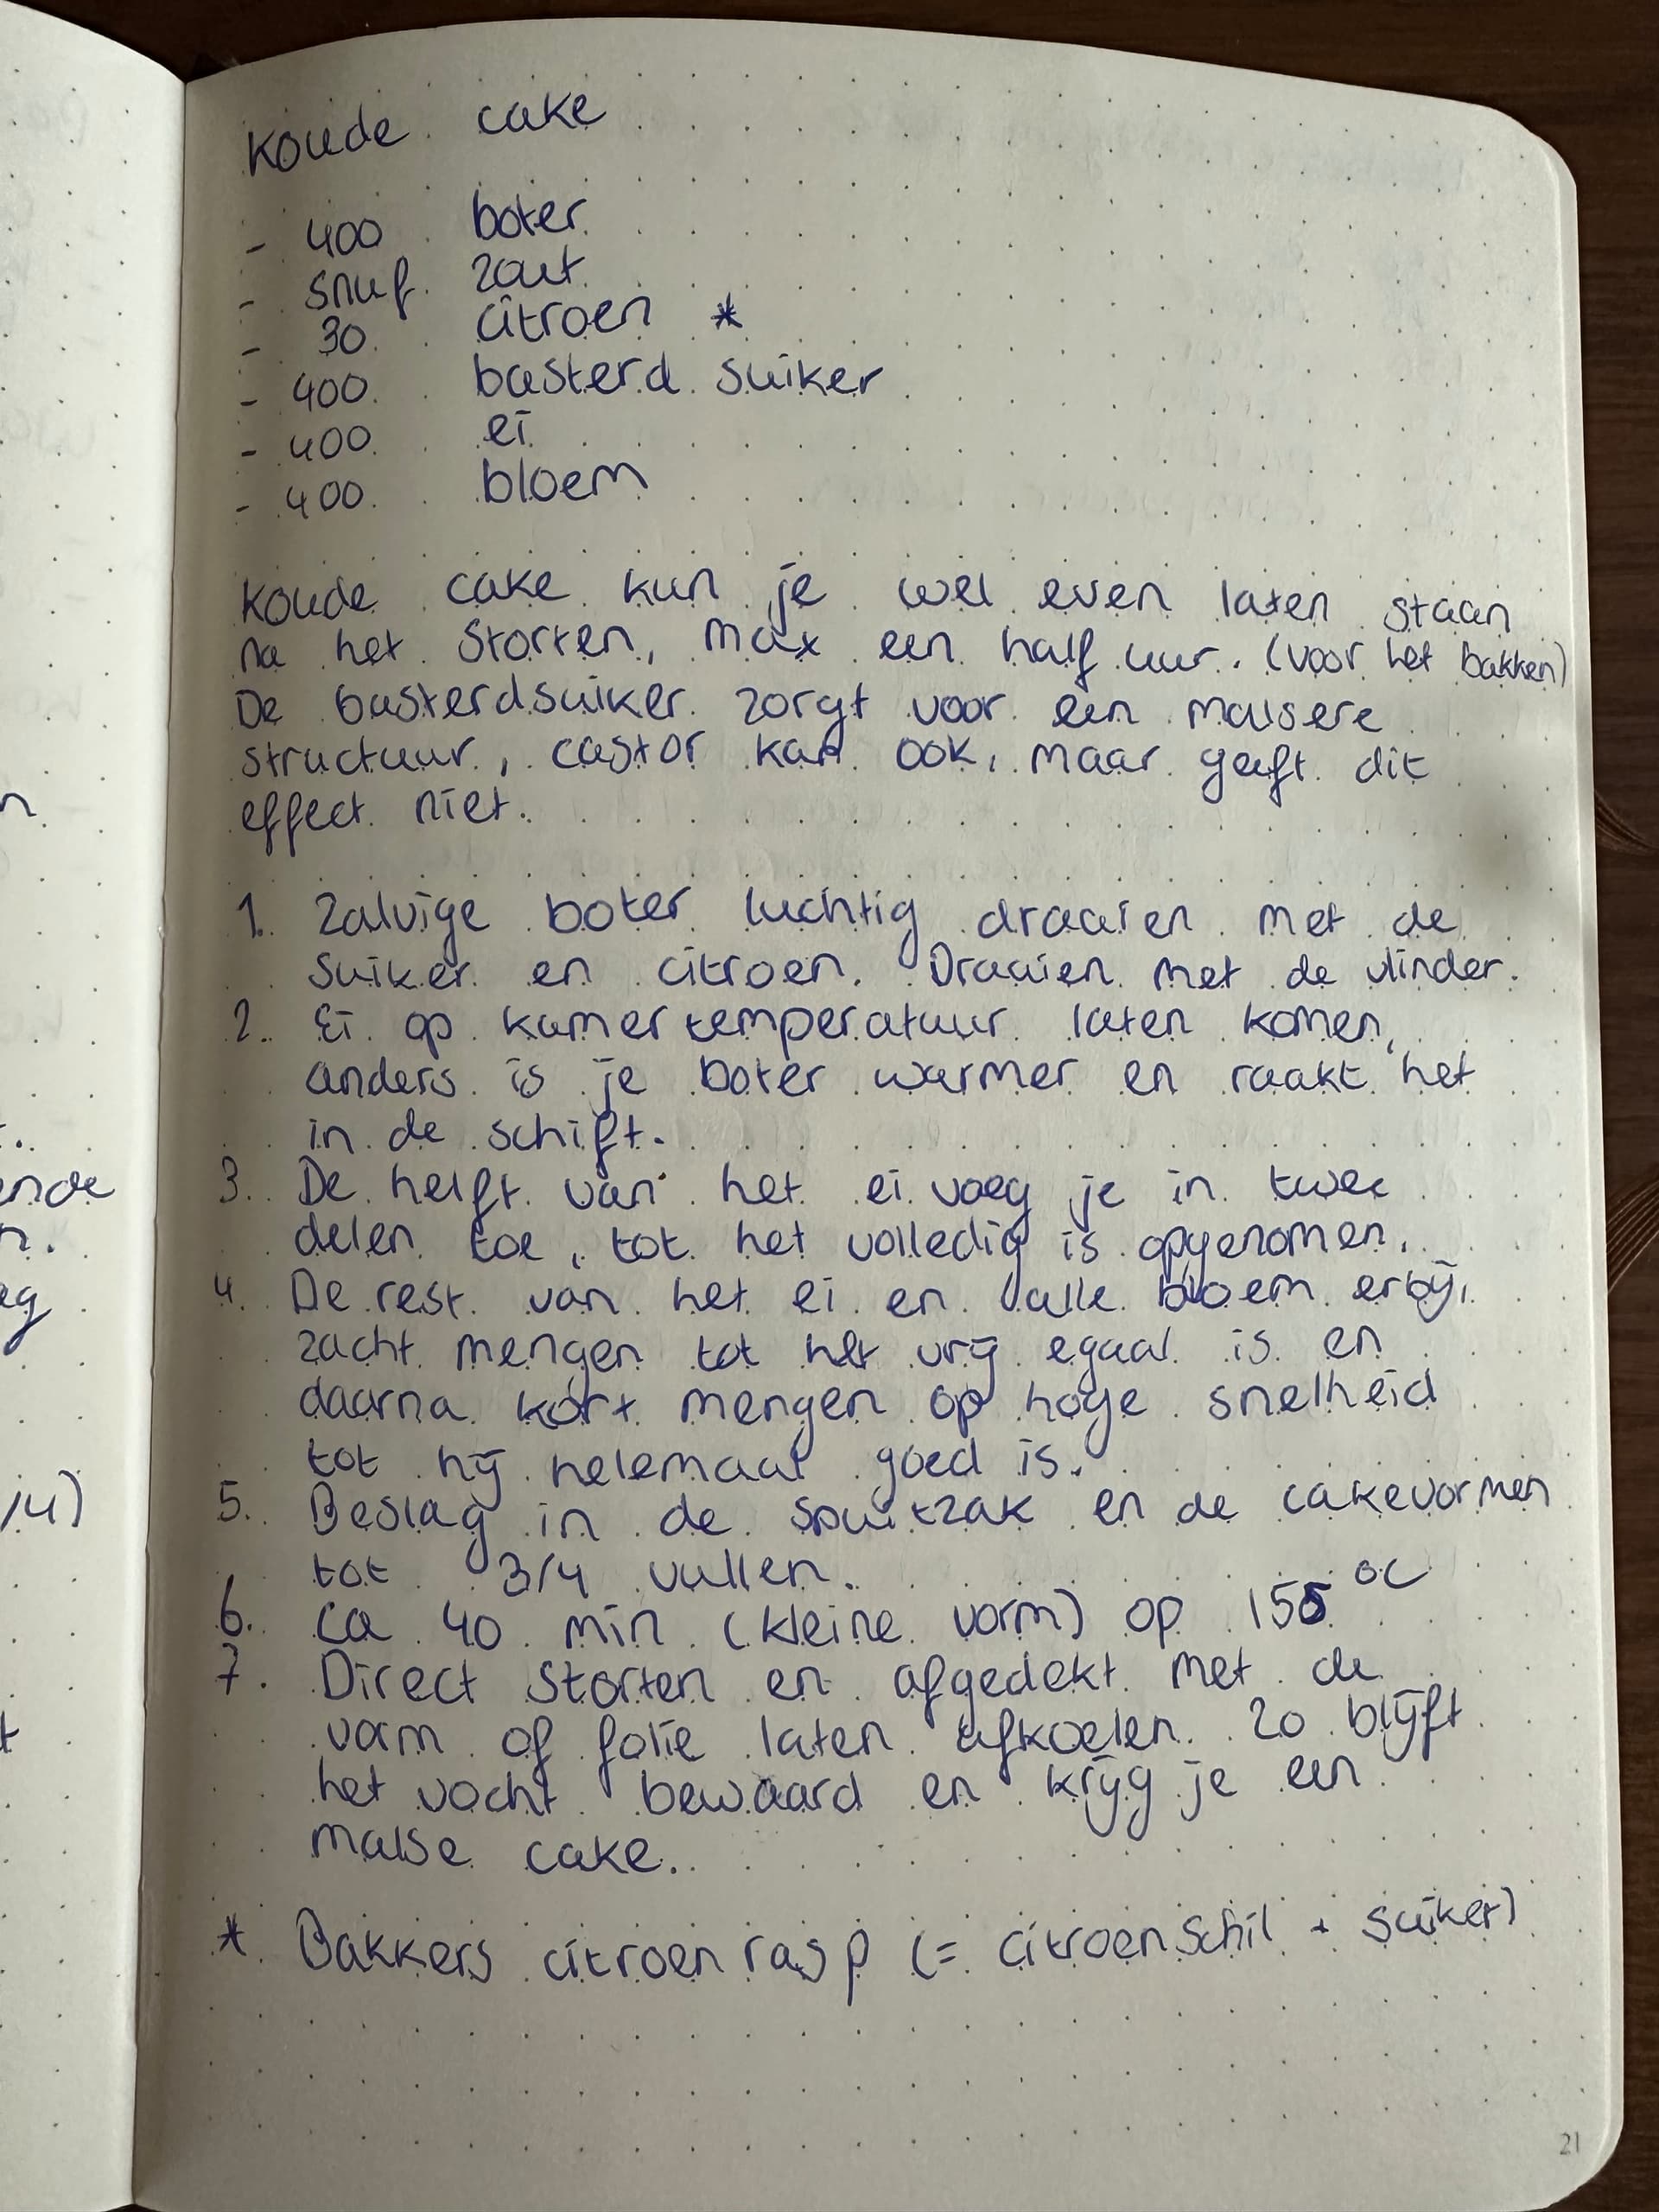 Koude cake
- 400 boter
- snuf zout
- 30 citroen *
- 400 basterd suiker
- 400 ei
- 400 bloem
Koude cake kun je wel even laten staan
na het storten, max een half uur. (voor het bakken)
De basterdsuiker zorgt voor een malsere
structuur, castor kan ook, maar geeft dit
effect niet.
1. Zalvige boter luchtig draaien met de
suiker en citroen. Draaien met de vlinder.
2. Ei op kamertemperatuur laten komen,
anders is je boter warmer en raakt het
in de schift.
3. De helft van het ei voeg je in twee
delen toe, tot het volledig is opgenomen.
4. De rest van het ei en alle bloem erbij,
zacht mengen tot het vrij egaal is en
daarna kort mengen op hoge snelheid
tot hij helemaal goed is.
5. Beslag in de spuitzak en de cakevormen
tot 3/4 vullen.
6. Ca 40 min (kleine vorm) op 155 °C
7. Direct storten en afgedekt met de
vorm of folie laten afkoelen. Zo blijft
het vocht bewaard en krijg je een
malse cake.
* Bakkers citroenrasp (= citroenschil + suiker)
21
n
t.
ende
n.
eg
/4)
t